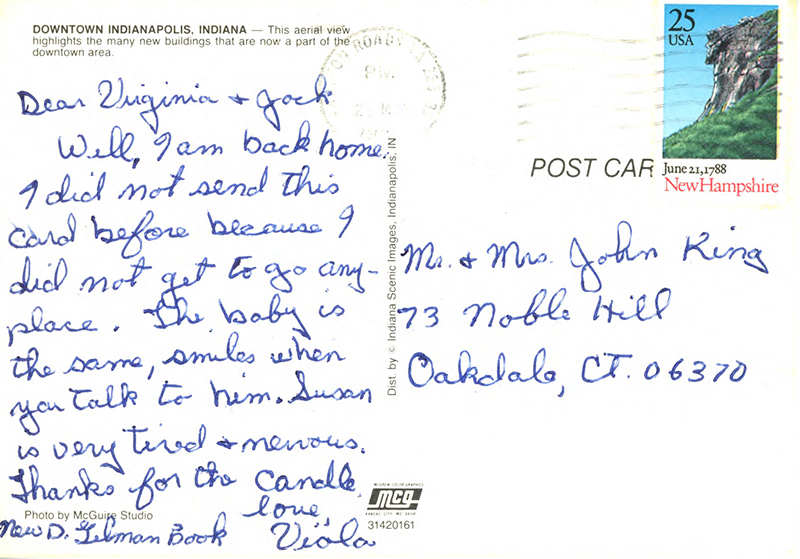 DOWNTOWN INDIANAPOLIS, INDIANA — This aerial view
highlights the many new buildings that are now a part of the
downtown area.
PM
25
USA
June 21, 1788
New Hampshire
POST CAR
Dear Virginia + Jack
Well, I am back home.
I did not send this
card before because I
did not get to go any-
place. The baby is
the same, smiles when
you talk to him. Susan
is very tired + nervous.
Thanks for the candle.
love,
Viola
New D. Gilman Book
Mr. + Mrs. John King
73 Noble Hill
Oakdale, CT. 06370
Dist. by © Indiana Scenic Images, Indianapolis, IN
Photo by McGuire Studio
McGREW COLOR GRAPHICS
mcg
KANSAS CITY, MO
31420161